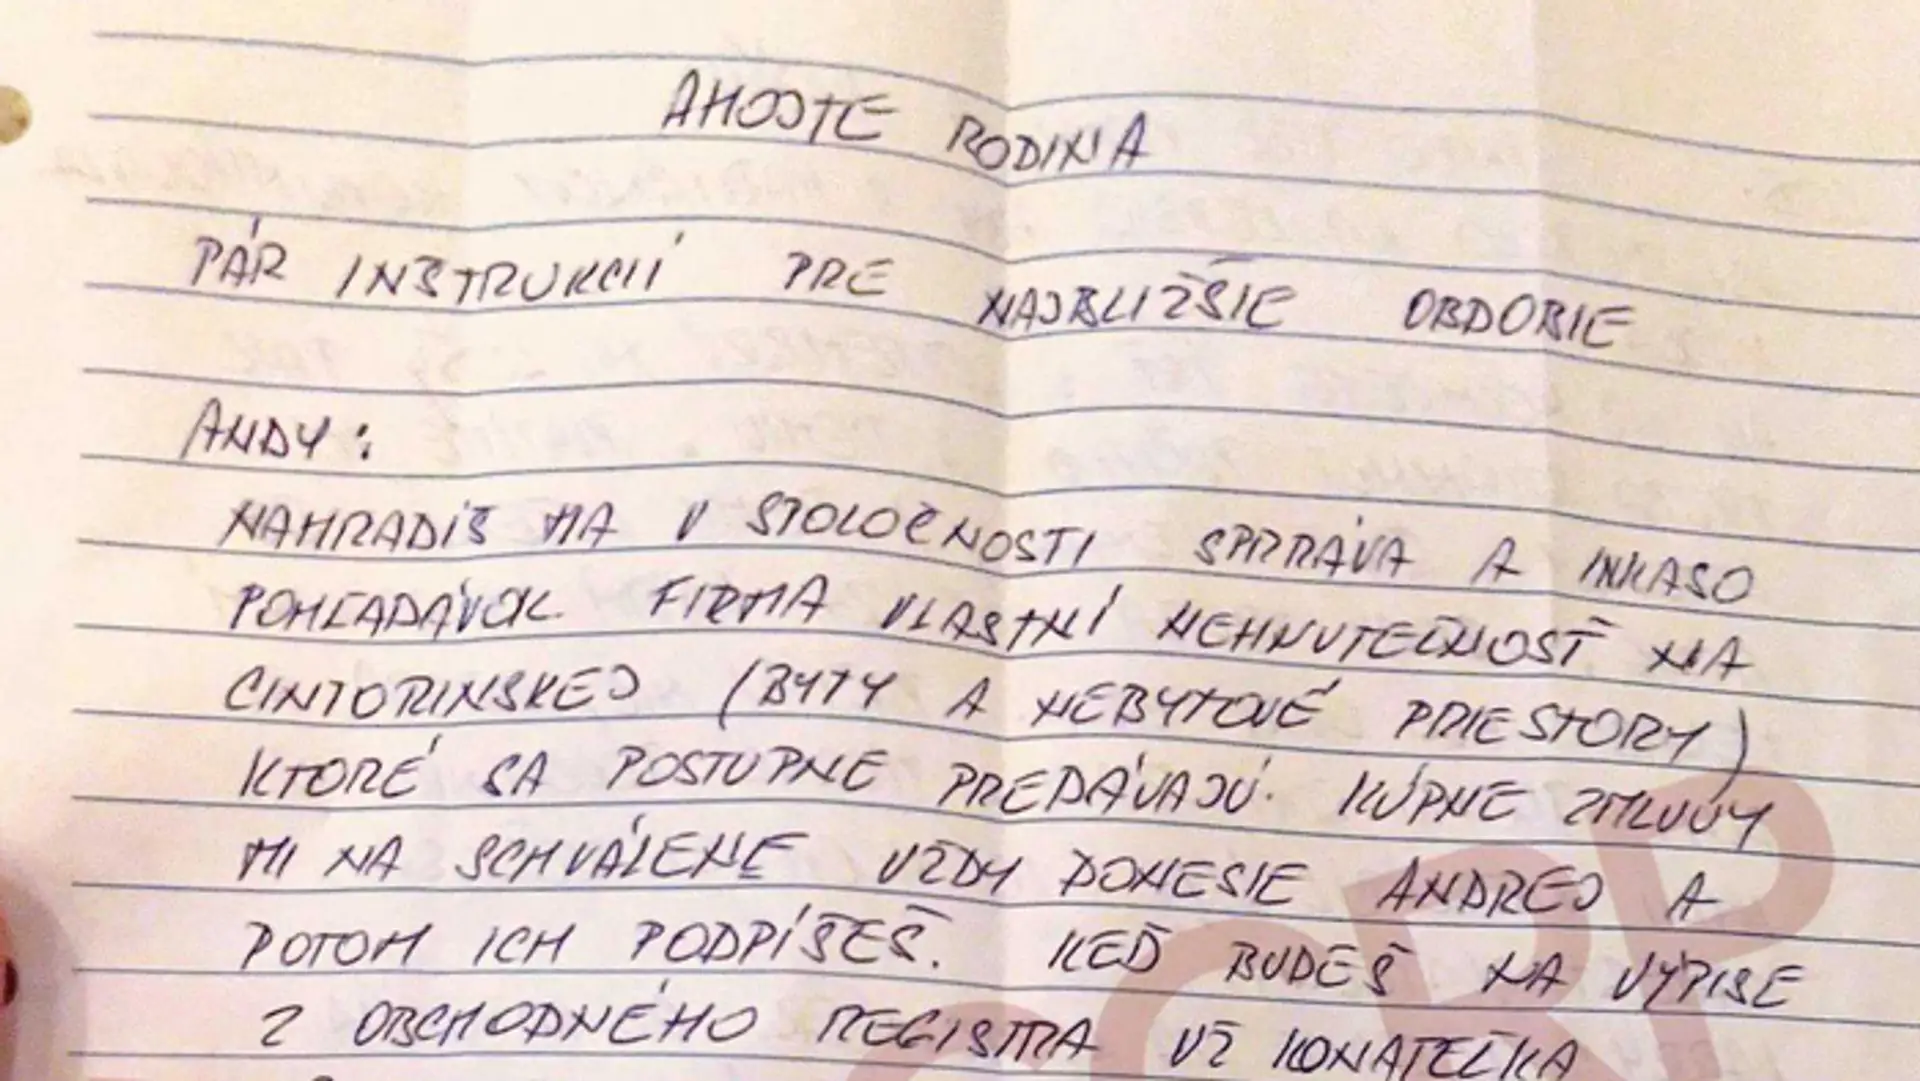 AHOJTE RODINA
PÁR INŠTRUKCIÍ PRE NAJBLIŽŠIE OBDOBIE
ANDY:
NAHRADÍŠ MA V SPOLOČNOSTI SPRÁVA A INKASO
POHĽADÁVOK. FIRMA VLASTNÍ NEHNUTEĽNOSŤ NA
CINTORINSKEJ (BYTY A NEBYTOVÉ PRIESTORY)
KTORÉ SA POSTUPNE PREDÁVAJÚ. KÚPNE ZMLUVY
MI NA SCHVÁLENE VŽDY DONESIE ANDREJ A
POTOM ICH PODPÍŠEŠ. KEĎ BUDEŠ NA VÝPISE
Z OBCHODNÉHO REGISTRA UŽ KONATEĽKA